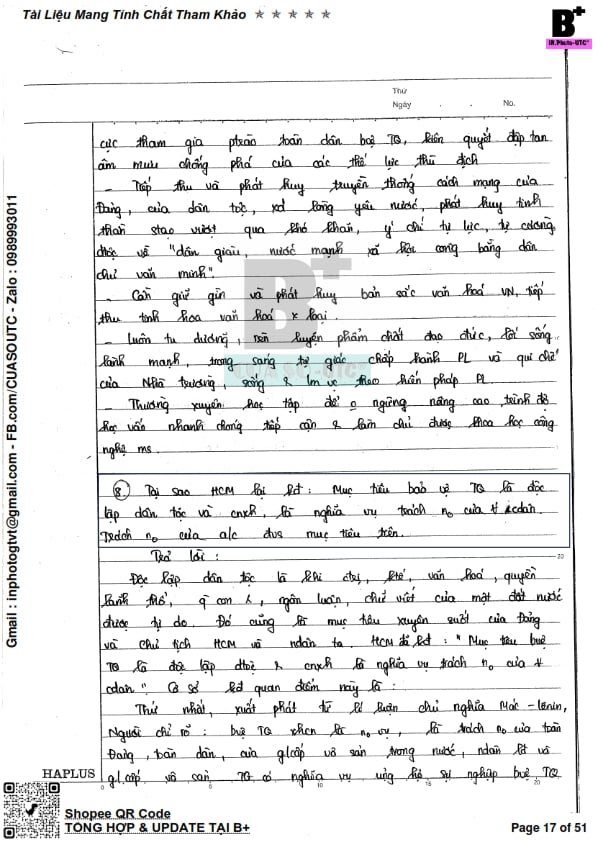 Tài Liệu Mang Tính Chất Tham Khảo ★ ★ ★ ★ ★
B+
IN.Photo-UTC*
Thứ
Ngày . . No.
cực tham gia ptrào toàn dân bvệ TQ, kiên quyết đập tan
âm mưu chống phá của các thế lực thù địch
- Tiếp thu và phát huy truyền thống cách mạng của
Đảng, của dân tộc, xd lòng yêu nước, phát huy tinh
thần vượt qua khó khăn, ý chí tự lực, tự cường
về "dân giàu, nước mạnh xã hội công bằng dân
chủ văn minh".
- Cần giữ gìn và phát huy bản sắc văn hoá VN, tiếp
thu tinh hoa văn hoá loại.
- Luôn tu dưỡng, rèn luyện phẩm chất đạo đức, lối sống
lành mạnh, trong sáng tự giác chấp hành PL và qui chế
của Nhà trường, sống & lm vc theo hiến pháp PL.
- Thường xuyên học tập để o ngừng nâng cao trình độ
học vấn nhanh chóng tiếp cận & làm chủ được khoa học công
nghệ ms.
B+
CỬA SỔ-UTC*
8. Tại sao HCM lại kđ: Mục tiêu bảo vệ TQ là độc
lập dân tộc và cnxh, là nghĩa vụ trách no của cdân.
Trách no của a/c đvs mục tiêu trên.
Trả lời :
Độc lập dân tộc là khi ctrị, ktế, văn hoá, quyền
lãnh thổ, ngôn luận, chữ viết của một đất nước
được tự do. Đó cũng là mục tiêu xuyên suốt của Đảng
và Chủ tịch HCM và ndân ta. HCM đã kđ: "Mục tiêu bvệ
TQ là độc lập & cnxh là nghĩa vụ trách no của
cdân". Cơ sở kđ quan điểm này là :
Thứ nhất, xuất phát từ lí luận chủ nghĩa Mác - Lênin,
Người chỉ rõ : bvệ TQ xhcn là nvụ, là trách no của toàn
Đảng, toàn dân, của g/cấp vô sản trong nước, ndân lđ và
g/cấp vô sản TG có nghĩa vụ ủng hộ sự nghiệp bvệ TQ
20
HAPLUS 0 5 10 15 20
Gmail : inphotogtvt@gmail.com - FB.com/CUASOUTC - Zalo : 0989993011
Shopee QR Code
TỔNG HỢP & UPDATE TẠI B+
Page 17 of 51